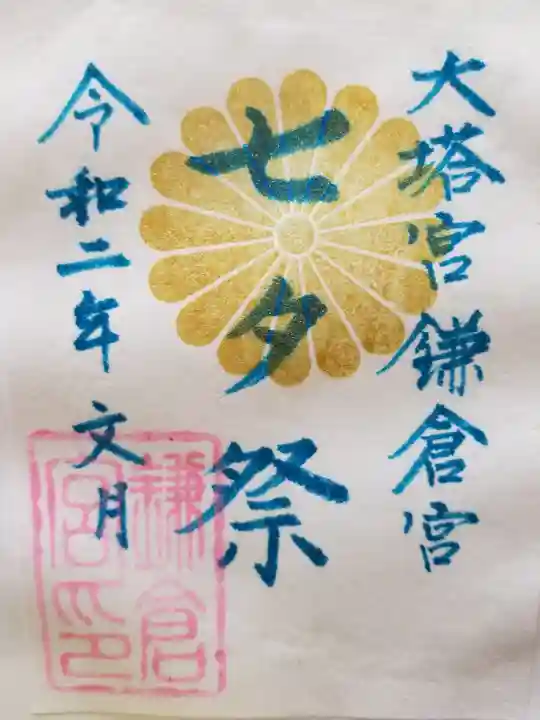 大塔宮鎌倉宮
七夕祭
令和二年 文月
鎌倉宮印